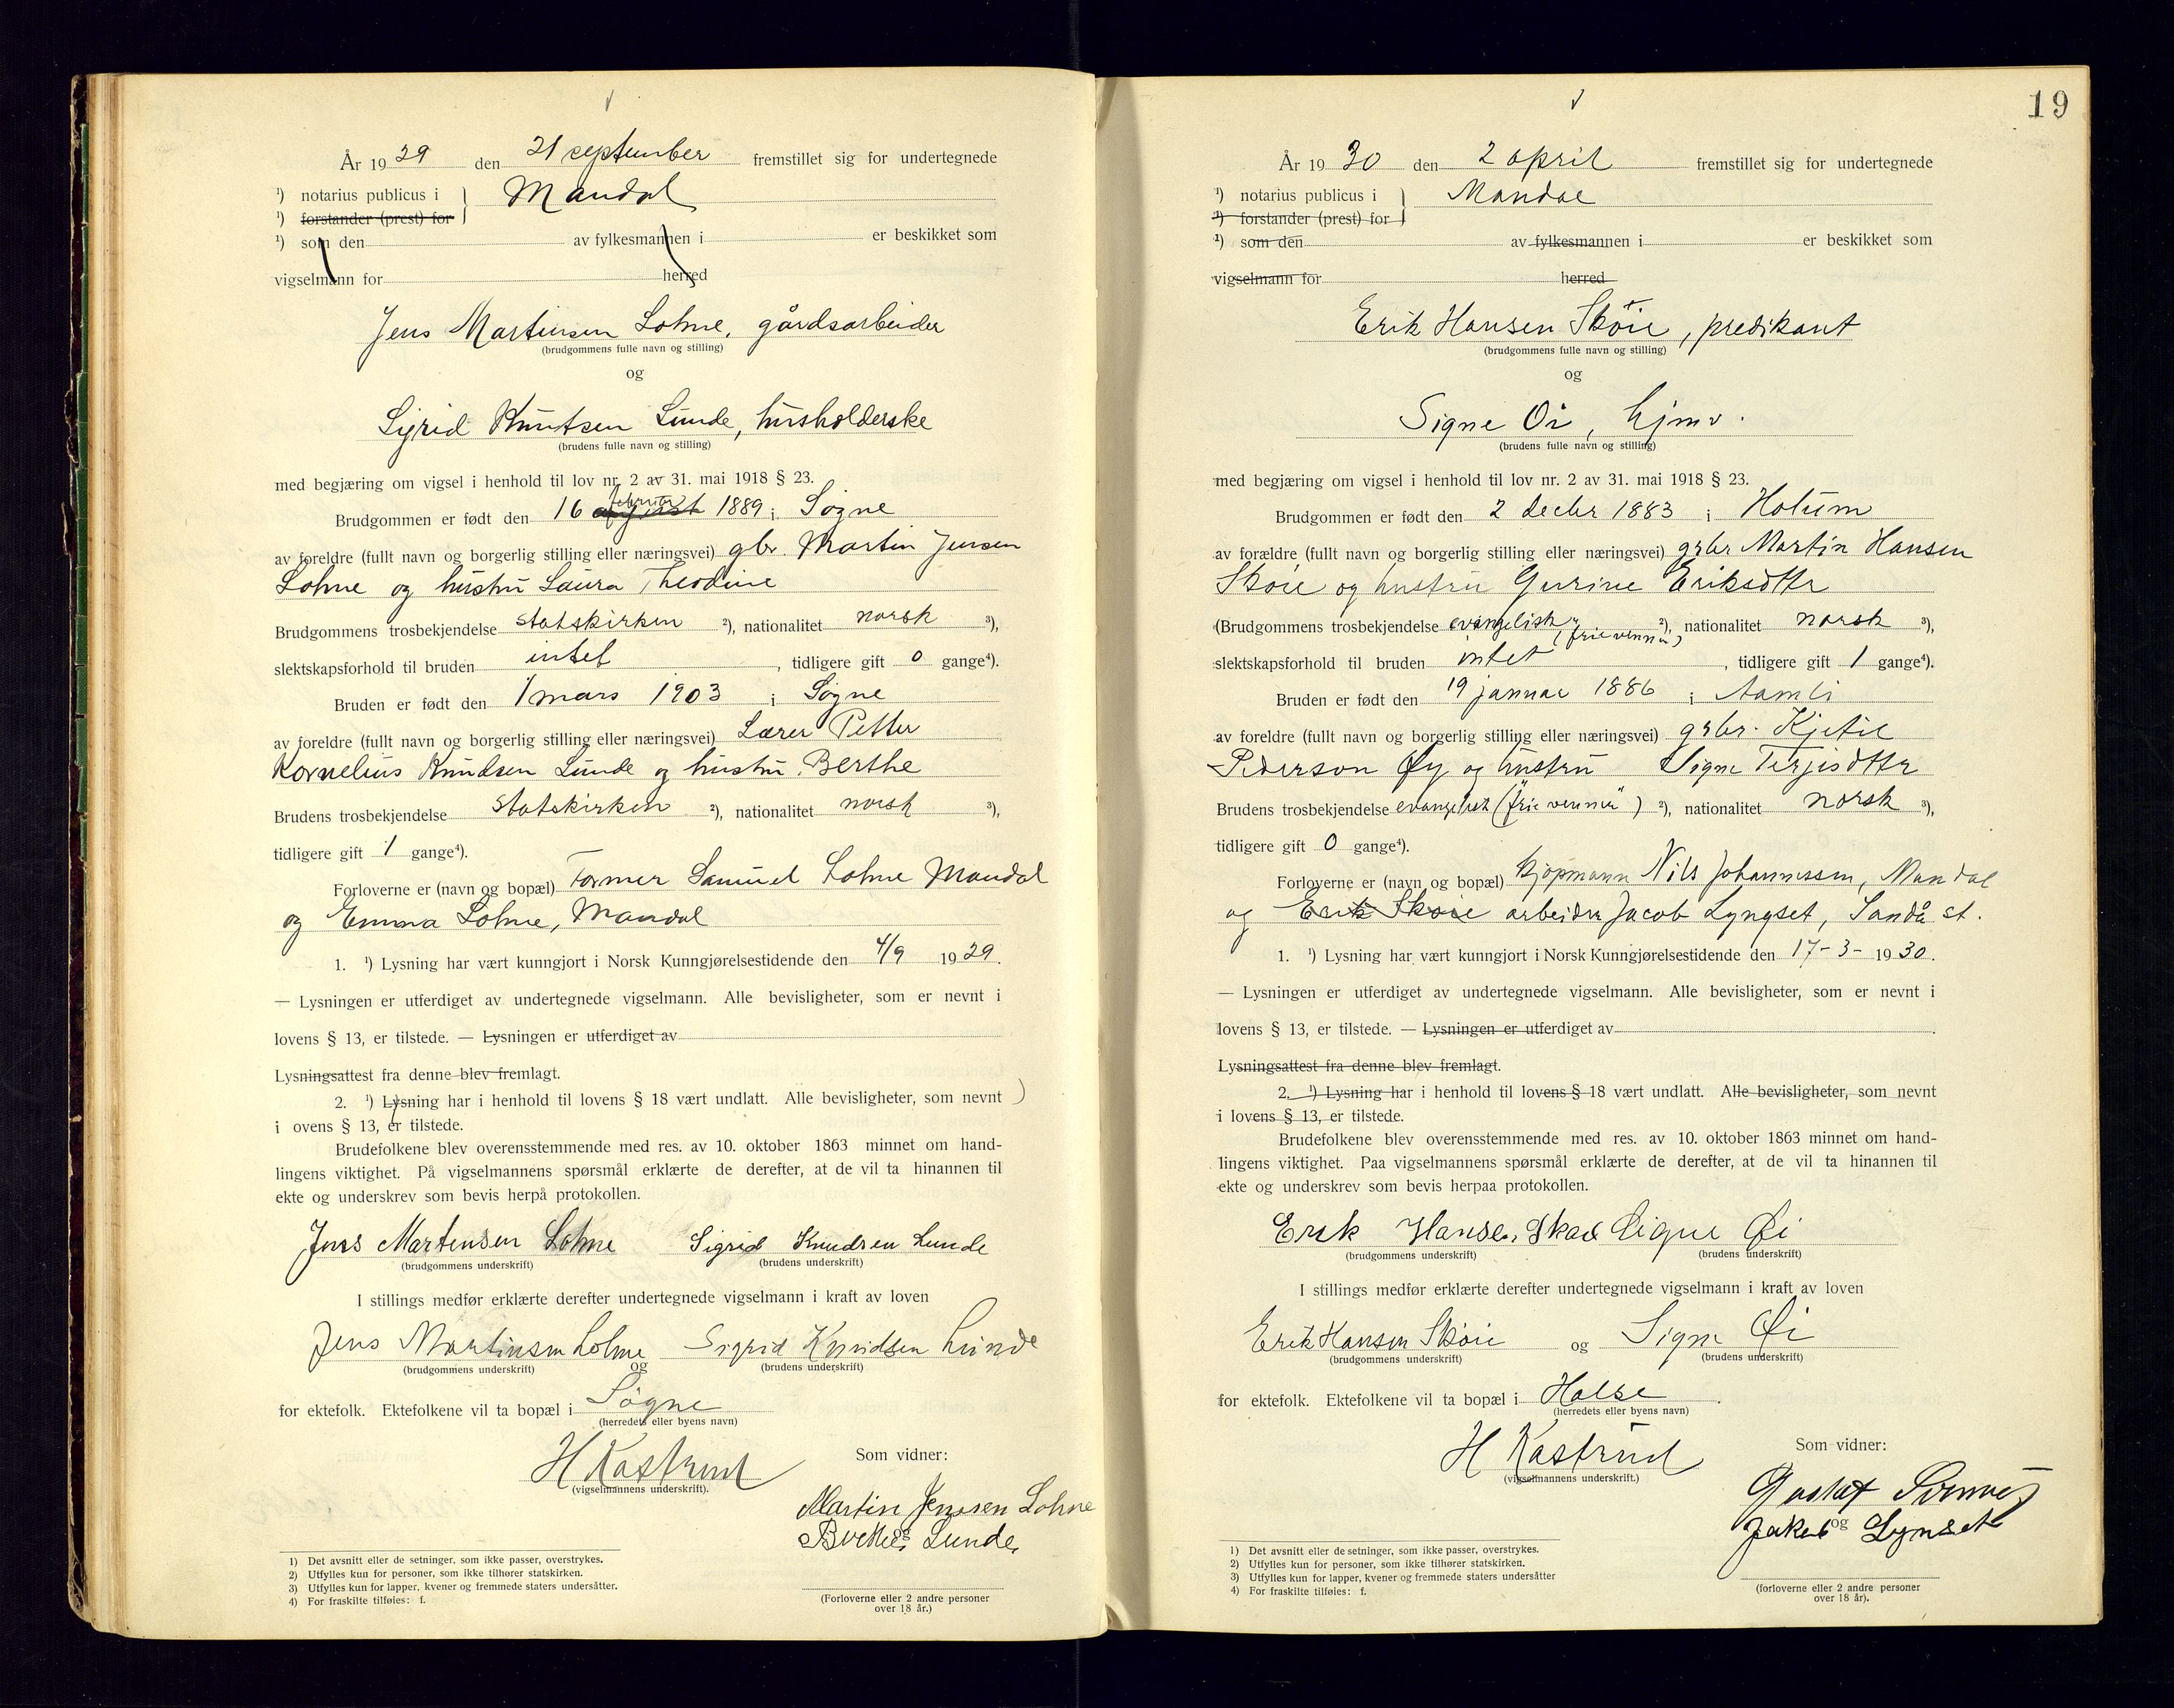 År 1929 den 21 september fremstillet sig for undertegnede
¹) notarius publicus i } Mandal
¹) forstander (prest) for
¹) som den av fylkesmannen i er beskikket som
vigselmann for herred
Jens Martinsen Lohne, gårdsarbeider
(brudgommens fulle navn og stilling)
og
Sigrid Knutsen Lunde, husholderske
(brudens fulle navn og stilling)
med begjæring om vigsel i henhold til lov nr. 2 av 31. mai 1918 § 23.
februar
Brudgommen er født den 16 august 1889 i Søgne
av foreldre (fullt navn og borgerlig stilling eller næringsvei) gbr. Martin Jensen
Lohne og hustru Laura Theodine
Brudgommens trosbekjendelse statskirken ²), nationalitet norsk ³),
slektskapsforhold til bruden intet, tidligere gift 0 gange⁴).
Bruden er født den 1 mars 1903 i Søgne
av foreldre (fullt navn og borgerlig stilling eller næringsvei) Lærer Petter
Kornelius Knudsen Lunde og hustru Berthe
Brudens trosbekjendelse statskirken ²), nationalitet norsk ³),
tidligere gift 1 gange⁴).
Forloverne er (navn og bopæl) Former Samuel Lohne Mandal
og Emma Lohne, Mandal
1. ¹) Lysning har vært kunngjort i Norsk Kunngjørelsestidende den 4/9 1929.
— Lysningen er utferdiget av undertegnede vigselmann. Alle bevisligheter, som er nevnt i
lovens § 13, er tilstede. — Lysningen er utferdiget av
Lysningsattest fra denne blev fremlagt.
2. ¹) Lysning har i henhold til lovens § 18 vært undlatt. Alle bevisligheter, som nevnt )
i ovens § 13, er tilstede.
Brudefolkene blev overensstemmende med res. av 10. oktober 1863 minnet om hand-
lingens viktighet. På vigselmannens spørsmål erklærte de derefter, at de vil ta hinannen til
ekte og underskrev som bevis herpå protokollen.
Jens Martensen Lohne Sigrid Knudsen Lunde
(brudgommens underskrift) (brudens underskrift)
I stillings medfør erklærte derefter undertegnede vigselmann i kraft av loven
Jens Martinsen Lohne og Sigrid Knudsen Lunde
(brudgommens underskrift) (brudens underskrift)
for ektefolk. Ektefolkene vil ta bopæl i Søgne
(herredets eller byens navn)
H Kastrud
(vigselmannens underskrift).
Som vidner:
Martin Jensen Lohne
og
Berthe Lunde
(Forloverne eller 2 andre personer
over 18 år.)
1) Det avsnitt eller de setninger, som ikke passer, overstrykes.
2) Utfylles kun for personer, som ikke tilhører statskirken.
3) Utfylles kun for lapper, kvener og fremmede staters undersåtter.
4) For fraskilte tilføies: f.
19
År 1930 den 2 april fremstillet sig for undertegnede
¹) notarius publicus i } Mandal
¹) forstander (prest) for
¹) som den av fylkesmannen i er beskikket som
vigselmann for herred
Erik Hansen Sköie, predikant
(brudgommens fulle navn og stilling)
og
Signe Öi, hjmv.
(brudens fulle navn og stilling)
med begjæring om vigsel i henhold til lov nr. 2 av 31. mai 1918 § 23.
Brudgommen er født den 2 decbr 1883 i Holum
av forældre (fullt navn og borgerlig stilling eller næringsvei) grbr Martin Hansen
Sköie og hustru Gurine Eriksdttr
(Brudgommens trosbekjendelse evangelisk ²), nationalitet norsk ³),
(frie venner)
slektskapsforhold til bruden intet, tidligere gift 1 gange⁴).
Bruden er født den 19 januar 1886 i Aamli
av foreldre (fullt navn og borgerlig stilling eller næringsvei) grbr. Kjetil
Pederson Øy og hustru Signe Terjesdttr
Brudens trosbekjendelse evangelisk ("frie venner") ²), nationalitet norsk ³),
tidligere gift 0 gange⁴).
Forloverne er (navn og bopæl) kjøpmann Nils Johannessen, Mandal
og Erik Skøie arbeider Jacob Lyngset, Sandå st.
1. ¹) Lysning har vært kunngjort i Norsk Kunngjørelsestidende den 17-3-1930.
— Lysningen er utferdiget av undertegnede vigselmann. Alle bevisligheter, som er nevnt i
lovens § 13, er tilstede. — Lysningen er utferdiget av .
Lysningsattest fra denne blev fremlagt.
2. ¹) Lysning har i henhold til lovens § 18 vært undlatt. Alle bevisligheter, som nevnt
i lovens § 13, er tilstede.
Brudefolkene blev overensstemmende med res. av 10. oktober 1863 minnet om hand-
lingens viktighet. Paa vigselmannens spørsmål erklærte de derefter, at de vil ta hinannen til
ekte og underskrev som bevis herpaa protokollen.
Erik Hansen Signe Øi
(brudgommens underskrift) (brudens underskrift)
I stillings medfør erklærte derefter undertegnede vigselmann i kraft av loven
Erik Hansen Sköie og Signe Øi
(brudgommens underskrift) (brudens underskrift)
for ektefolk. Ektefolkene vil ta bopæl i Halse.
(herredets eller byens navn)
H Kastrud
(vigselmannens underskrift.)
Som vidner:
Gustav
Jakob og Lynset
(forloverne eller 2 andre personer
over 18 år).
1) Det avsnitt eller de setninger, som ikke passer, overstrykes.
2) Utfylles kun for personer, som ikke tilhører statskirken.
3) Utfylles kun for lapper, kvener og fremmede staters undersåtter
4) For fraskilte tilføies: f.